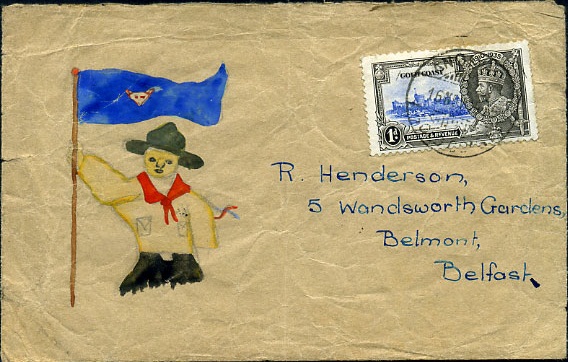 GOLD COAST
1d
POSTAGE & REVENUE
R. Henderson,
5 Wandsworth Gardens,
Belmont,
Belfast.